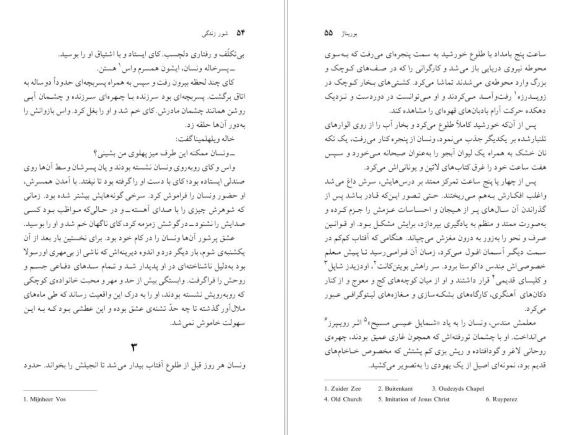 ۵۴ شور زندگی
بی‌تکلّف و رفتاری دلچسب. کای ایستاد و با اشتیاق او را بوسید.
ــ پسرخاله ونسان، ایشون همسرم واس۱ هستن.
کای چند لحظه بیرون رفت و سپس به همراه پسربچه‌ای حدوداً دوساله به
اتاق برگشت. پسربچه‌ای بود سرزنده با چهره‌ای سرزنده و چشمان آبی
روشن همانند چشمان مادرش. کای خم شد و او را بغل کرد. واس بازوانش را
به‌دور آن‌ها حلقه زد.
خاله ویلهلمینا گفت:
ــ ونسان ممکنه این طرف میز پهلوی من بشینی؟
واس و کای روبه‌روی ونسان نشسته بودند و یان پسرشان وسط آن‌ها روی
صندلی ایستاده بود؛ کای با دست او را گرفته بود تا نیفتد. با آمدن همسرش،
او حضور ونسان را فراموش کرد. سرخی گونه‌هایش بیشتر شده بود. زمانی
که شوهرش چیزی را با صدای آهسته ــ و در حالی‌که مواظب بود کسی
صدایش را نشنود ــ درگوشش زمزمه کرد، کای ناگهان خم شد و او را بوسید.
عشق پرشور آن‌ها ونسان را در کام خود برد. برای نخستین بار بعد از آن
یکشنبه‌ی شوم، بار دیگر درد و اندوه دیرینه‌اش که ناشی از بی‌مهری اورسولا
بود به‌دلیل ناشناخته‌ای در او پدیدار شد و تمام سدهای دفاعی جسم و
روحش را فراگرفت. وابستگی بیش از حد و مهر و محبت خانواده‌ی کوچکی
که روبه‌رویش نشسته بودند، او را به درک این واقعیت رساند که طی ماه‌های
ملال‌آور گذشته تا چه حدّ تشنه‌ی عشق بوده و این عطشی بود که به این
سهولت خاموش نمی‌شد.
۳
ونسان هر روز قبل از طلوع آفتاب بیدار می‌شد تا انجیلش را بخواند. حدود
1. Mijnheer Vos
بوریناژ ۵۵
ساعت پنج بامداد با طلوع خورشید به سمت پنجره‌ای می‌رفت که به‌سوی
محوطه نیروی دریایی باز می‌شد و کارگرانی را که در صف‌های کوچک و
بزرگ وارد محوطه‌ی می‌شدند تماشا می‌کرد. کشتی‌های بخار کوچک در
زویدرزه۱ رفت‌وآمد می‌کردند و او می‌توانست در دوردست و نزدیک
دهکده حرکت آرام بادبان‌های قهوه‌ای را مشاهده کند.
پس از آن‌که خورشید کاملاً طلوع می‌کرد و بخار آب را از روی الوارهای
تلنبارشده بر یکدیگر جذب می‌نمود، ونسان از پنجره کنار می‌رفت، یک تکه
نان خشک به همراه یک لیوان آبجو را به‌عنوان صبحانه می‌خورد و سپس
هفت ساعت خود را غرق کتاب‌های لاتین و یونانی‌اش می‌کرد.
پس از چهار یا پنج ساعت تمرکز ممتد بر درس‌هایش، سرش داغ می‌شد
واغلب افکارش به‌هم می‌ریختند. حتی تصور این‌که قادر باشد پس از
گذراندن آن سال‌های پر از هیجان و احساسات عزمش را جزم کرده و
به‌صورت ممتد و منظم به یادگیری بپردازد، برایش مشکل بود. او قوانین
صرف و نحو را به‌زور به درون مغزش می‌چپاند. هنگامی که آفتاب کم‌کم در
سمت دیگر آسمان افول می‌کرد، زمان آن فرامی‌رسید تا پیش معلم
خصوصی‌اش مندس داکوستا برود. سر راهش بویتن‌کانت۲، اودزیدز شاپل۳
و کلیسای قدیمی۴ قرار داشتند و او از میان کوچه‌های کج و معوج و از کنار
دکان‌های آهنگری، کارگاه‌های بشکه‌سازی و مغازه‌های لیتوگرافی عبور
می‌کرد.
معلمش مندس، ونسان را به یاد «شمایل عیسی مسیح»۵ اثر رویپرز۶
می‌انداخت. او با چشمان تورفته‌اش که همچون غاری عمیق بودند، چهره‌ی
روحانی لاغر و گودافتاده و ریش بزی کم پشتش که مخصوص خاخام‌های
قدیم بود، نمونه‌ای اصیل از یک یهودی را به‌تصویر می‌کشید.
1. Zuider Zee 2. Buitenkant 3. Oudezyds Chapel
4. Old Church 5. Imitation of Jesus Christ 6. Ruyperez